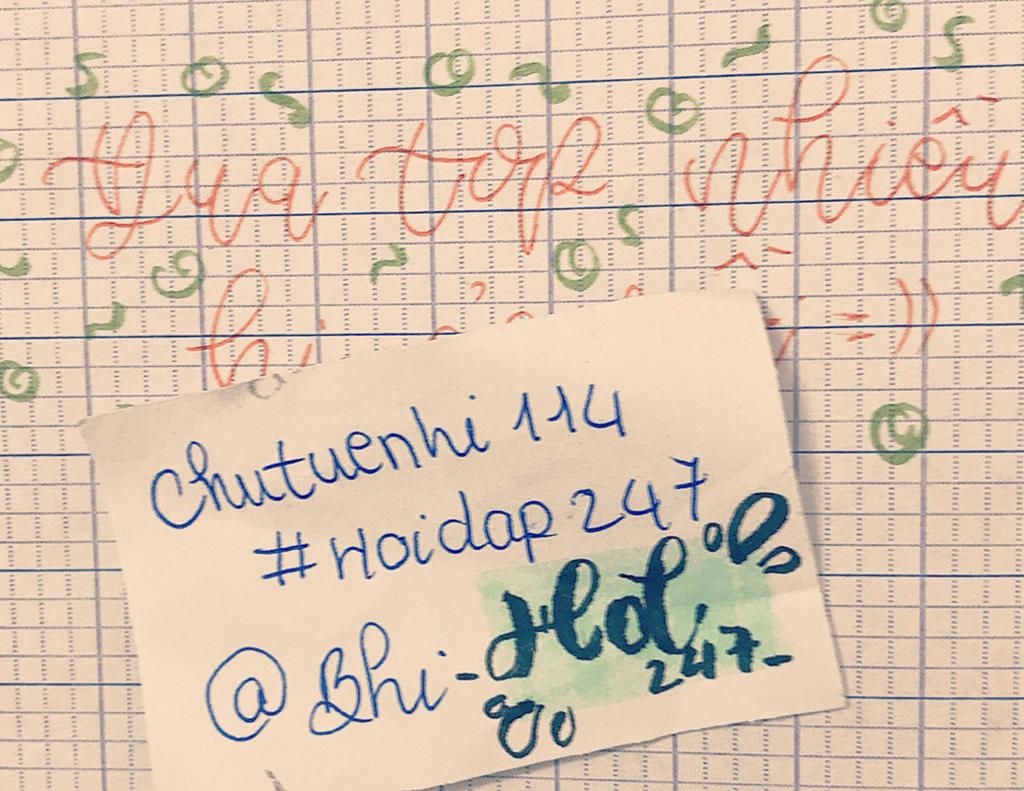 Đua top nhiều
=))
Chutuenhi 114
#Hoidap 247
@Bhi-Hd
247-